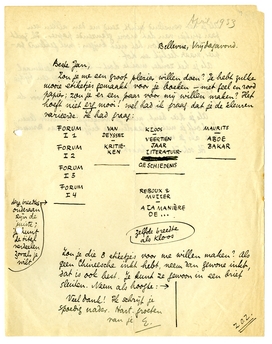 April 1933
Bellevue, Vrijdagavond.
Beste Jan,
Zou je me een groot plezier willen doen? Je hebt zulke
mooie etiketjes gemaakt voor je boeken — met geel en rood
papier; zou je er een paar voor mij willen maken? Het
hoeft niet erg mooi! wel had ik graag dat je de kleuren
varieerde. Ik had graag:
FORUM
I 1
VAN
DEYSSEL
KRITIE-
KEN
KLOOS
VEERTIEN
JAAR
LITERATUUR-
GESCHIEDENIS
MAURITS
ABOE
BAKAR
FORUM
I 2
FORUM
I 3
FORUM
I 4
REBOUX &
MULLER
A LA MANIÈRE
DE ...
Zelfde breedte
als Kloos
de breedte
onderaan
zijn de
juiste;
je kunt
je titel
verdeelen
zooals je
wilt
Zou je die 8 etiketjes voor me willen maken? Als
geen Chineesche inkt hebt, neem dan gewone inkt,
dat is ook best. Je kunt ze gewoon in een brief
sluiten. Neem als hoogte:
Veel dank! Ik schrijf je
spoedig nader. Hart. groeten
van je E.
202.